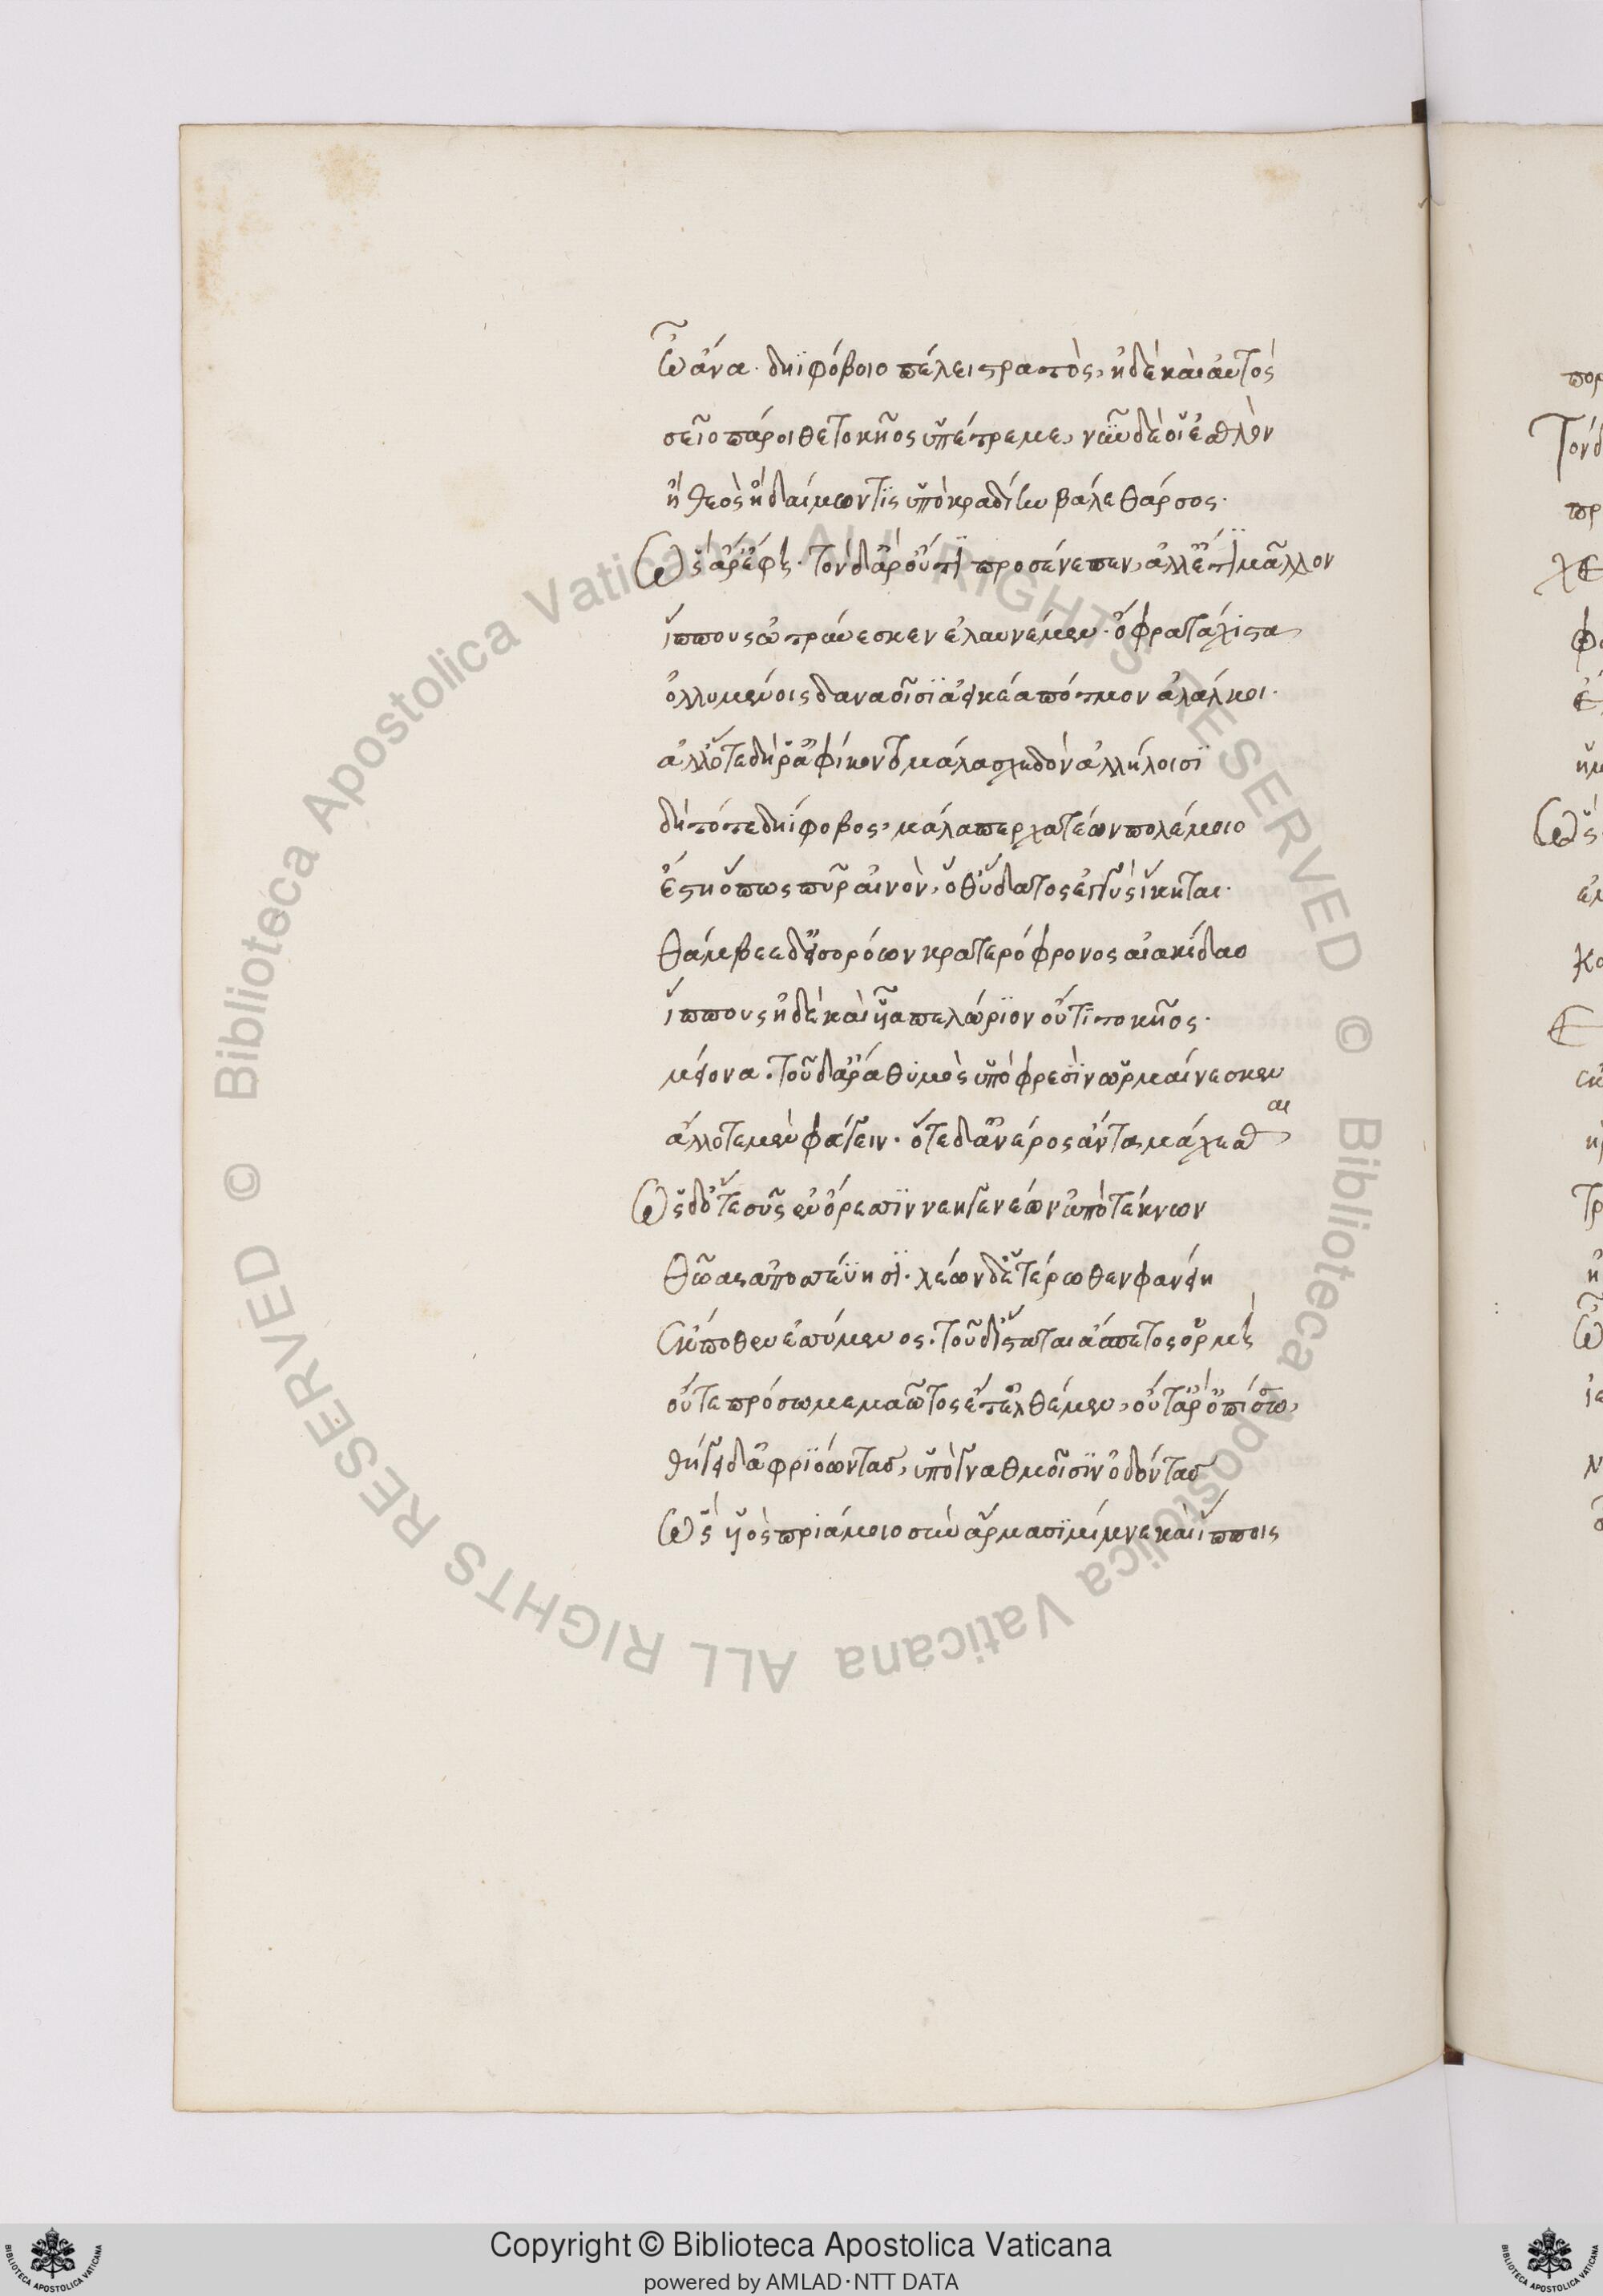 Ὦ ἄνα. δηϊφόβοιο πέλει στρατὸς, ἠδὲ καὶ αὐτὸς
σεῖο πάροιθε τοκῆος ὑπέτρεμε, νῦν δέ οἱ ἐσθλὸν
ἢ θεὸς ἢ δαίμων τὶς ὑπὸ κραδίην βάλε θάρσος.
Ὣς ἄρ ἔφη. τὸν δ ἄρ οὔτι προσένεπεν, ἀλλ ἔτι μᾶλλον
ἵππους ὠτρύνεσκεν ἐλαυνέμεν. ὄφρα τάχιστα
ὀλλυμένοις δαναοῖσιν ἀεικέα πότμον ἀλάλκοι.
ἀλλ ὅτε δή ῥ ἀφίκοντο μάλα σχεδὸν ἀλλήλοισι
δὴ τότε δηίφοβος, μάλα περ χατέων πολέμοιο
ἔστη ὅπως πῦρ αἰνὸν, ὅθ ὕδατος ἐγγὺς ἵκηται.
θάμβεε δ εἰσορόων κρατερόφρονος αἰακίδαο
ἵππους ἠδὲ καὶ υἷα πελώριον οὔτι τοκῆος.
μείονα. τοῦ δ ἄρα θυμὸς ὑπὸ φρεσὶν ὥρμαίνεσκεν
ἄλλοτε μὲν φεύγειν. ὁτὲ δ ἀνέρος ἄντα μάχεσθαι
Ὡς δ ὅτε σῦς ἐν ὄρεσσιν νεηγενέων ἀπὸ τέκνων
θῶας ἀποσσεύησι. λέων δ ἑτέρωθεν φανείη
ἔκποθεν ἐσσύμενος. τοῦ δ ἵσταται ἄσπετος ὁρμὴ
οὔτε πρόσω μεμαῶτος ἔτ ἐλθέμεν, οὔτ ἄρ ὀπίσσω,
θήγει δ ἀφριόωντας, ὑπὸ γναθμοῖσιν ὀδόντας
Ὣς υἱὸς πριάμοιο σὺν ἅρμασι μίμνε καὶ ἵπποις
Copyright © Biblioteca Apostolica Vaticana
powered by AMLAD·NTT DATA
© Biblioteca Apostolica Vaticana ALL RIGHTS RESERVED
© Biblioteca Apostolica Vaticana ALL RIGHTS RESERVED